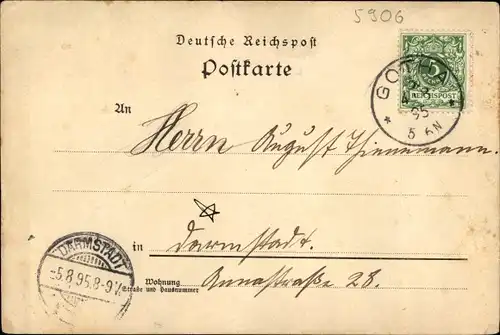 5906
Deutsche Reichspost
Postkarte
5
REICHSPOST
GOTHA
95
5 6N
An
Herrn August Thienemann.
in
Darmstadt.
DARMSTADT
5.8.95.8-9V.
Wohnung
Straße und Hausnummer
Annastraße 28.